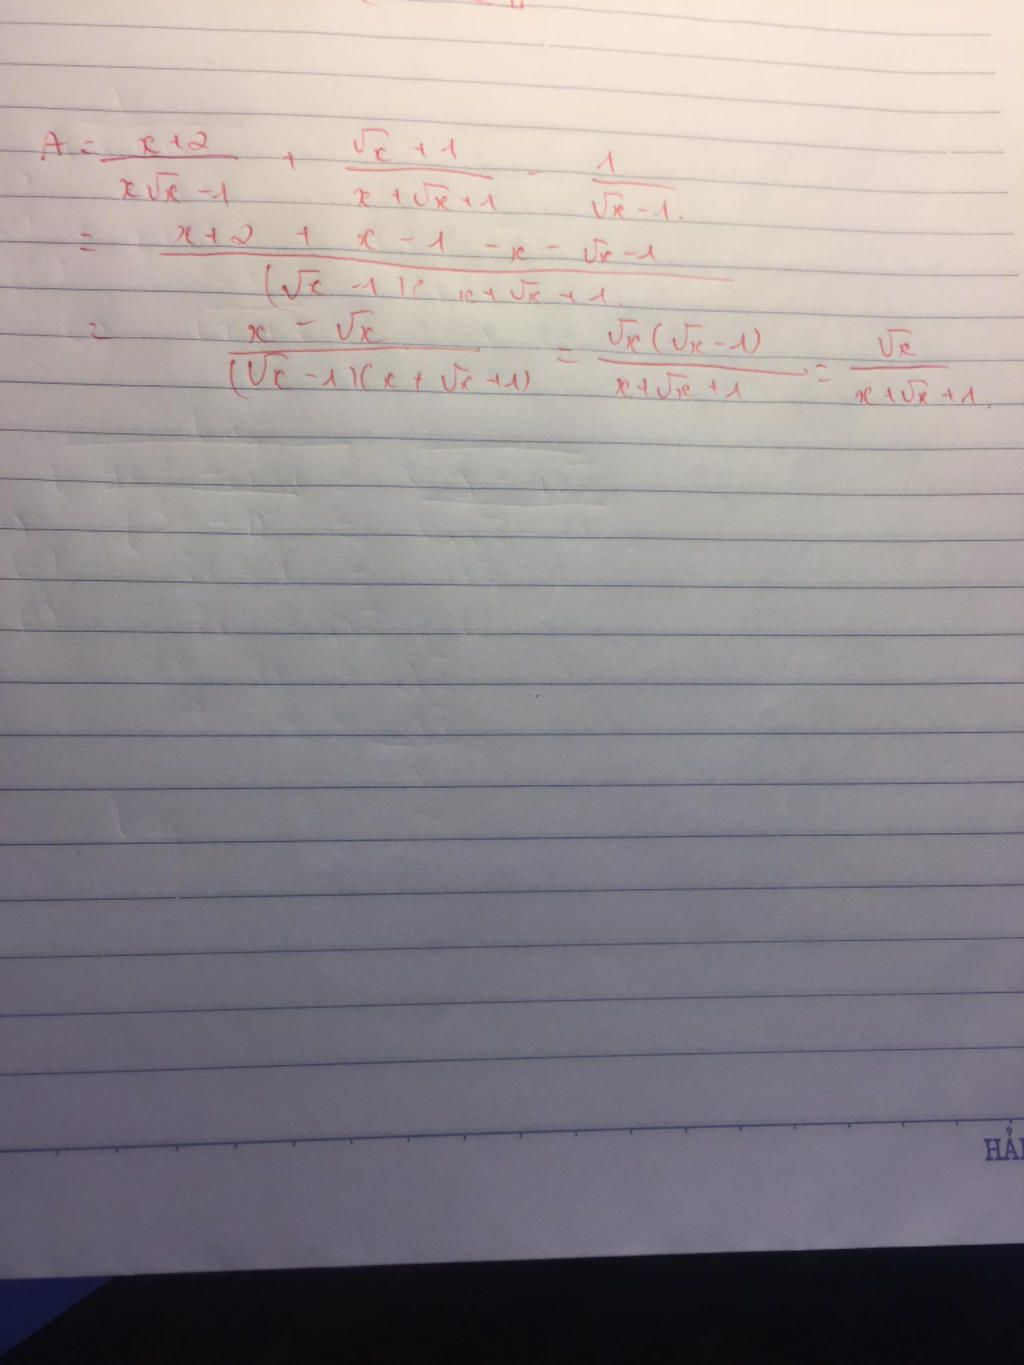 A = (x+2)/(x√x -1) + (√x +1)/(x+√x+1) - 1/(√x -1).
= (x+2 + x-1 -x-√x-1)/((√x -1)(x+√x+1.
= (x - √x)/((√x -1)(x+√x+1)) = (√x(√x-1))/(x+√x+1) = √x/(x+√x+1.